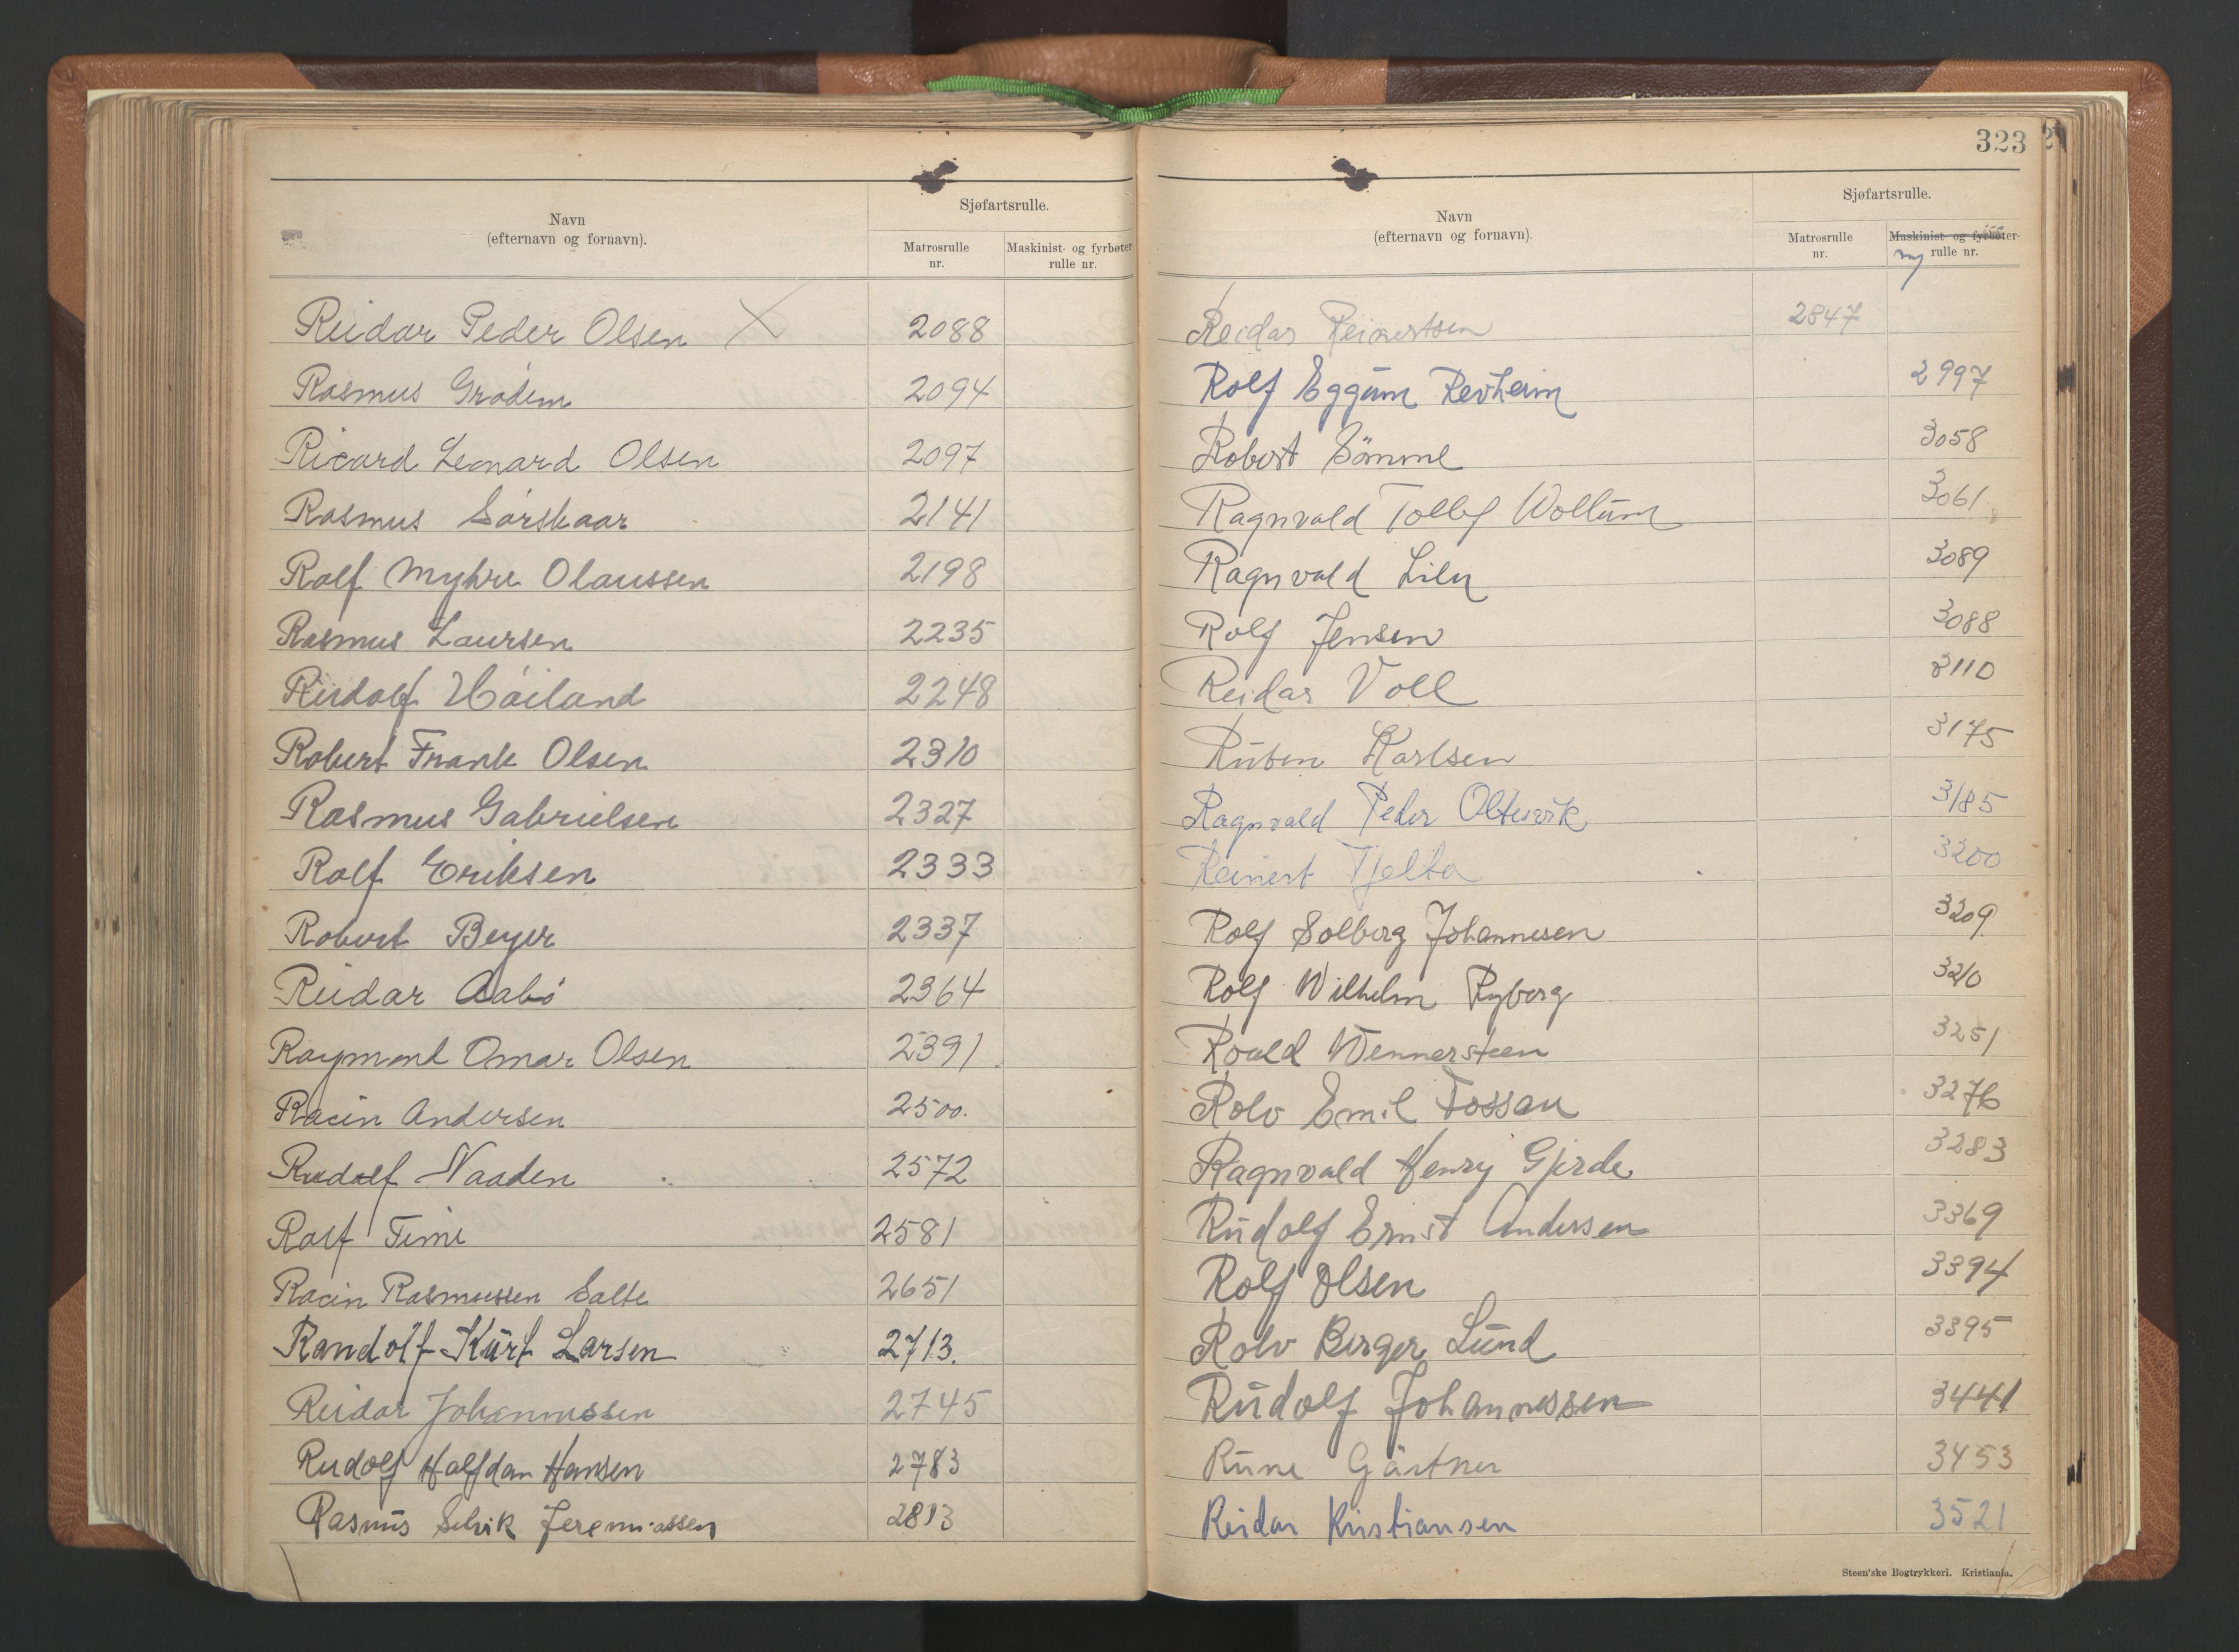 Navn
(efternavn og fornavn).
Sjøfartsrulle.
Matrosrulle
nr.
Maskinist- og fyrbøter
rulle nr.
Reidar Peder Olsen X 2088
Rasmus Grødem 2094
Ricard Leonard Olsen 2097
Rasmus Sørskaar 2141
Rolf Myhre Olaussen 2198
Rasmus Laursen 2235
Rudolf Høiland 2248
Robert Frank Olsen 2310
Rasmus Gabrielsen 2327
Rolf Eriksen 2333
Robert Beyer 2337
Reidar Aabø 2364
Raymond Omar Olsen 2391
Racin Andersen 2500.
Rudolf Naaden 2572
Rolf Time 2581
Racin Rasmussen Salte 2651
Randolf Kurt Larsen 2713.
Reidar Johannessen 2745
Rudolf Halfdan Hansen 2783
Rasmus Selvik Jeremiassen 2813
323
Navn
(efternavn og fornavn).
Sjøfartsrulle.
Matrosrulle
nr.
Maskinist- og fyrbøter-
ny rulle nr.
Reidar Reinertsen 2847
Rolf Eggum Revheim 2997
Robert Sömme 3058
Ragnvald Tollef Wollum 3061
Ragnvald Lilu 3089
Rolf Jensen 3088
Reidar Voll 3110
Ruben Karlsen 3175
Ragnvald Peder Oltesvik 3185
Reinert Tjelta 3200
Rolf Solberg Johannesen 3209
Rolf Wilhelm Ryberg 3210
Roald Wennersteen 3251
Rolv Emil Fossan 3276
Ragnvald Henry Gjerde 3283
Rudolf Ernst Andersen 3369
Rolf Olsen 3394
Rolv Birger Lund 3395
Rudolf Johannessen 3441
Rune Gärtner 3453
Reidar Kristiansen 3521
Steen'ske Bogtrykkeri. Kristiania.